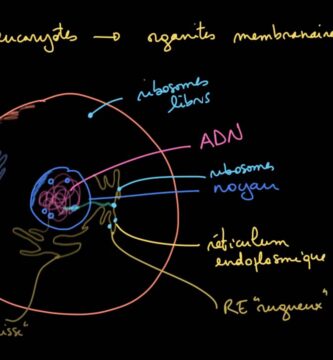 eucaryotes → organites membranaire
ribosomes
libres
ADN
ribosomes
noyau
réticulum
endoplosmique
RE "rugueux"
isse"